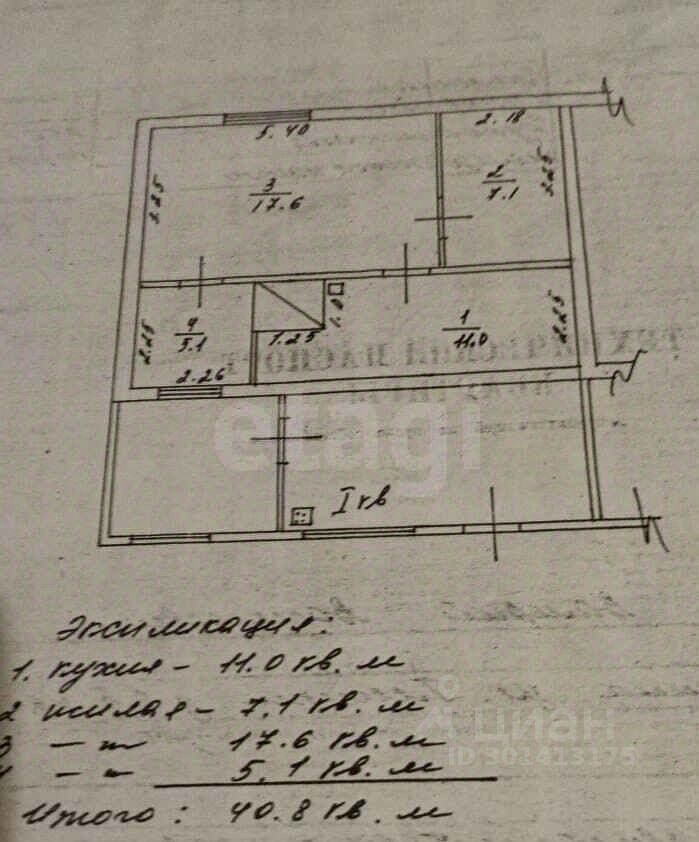 5.40
2.18
3.25
3
17.6
2
7.1
3.25
1.0
4
5.1
2.25
1.25
1
11.0
2.25
2.26
etagi
I кв
Экспликация:
1. кухня - 11.0 кв. м
2 жилая - 7.1 кв. м
3 — " — 17.6 кв. м
— " — 5.1 кв. м
Итого: 40.8 кв. м
циан
ID 301413175